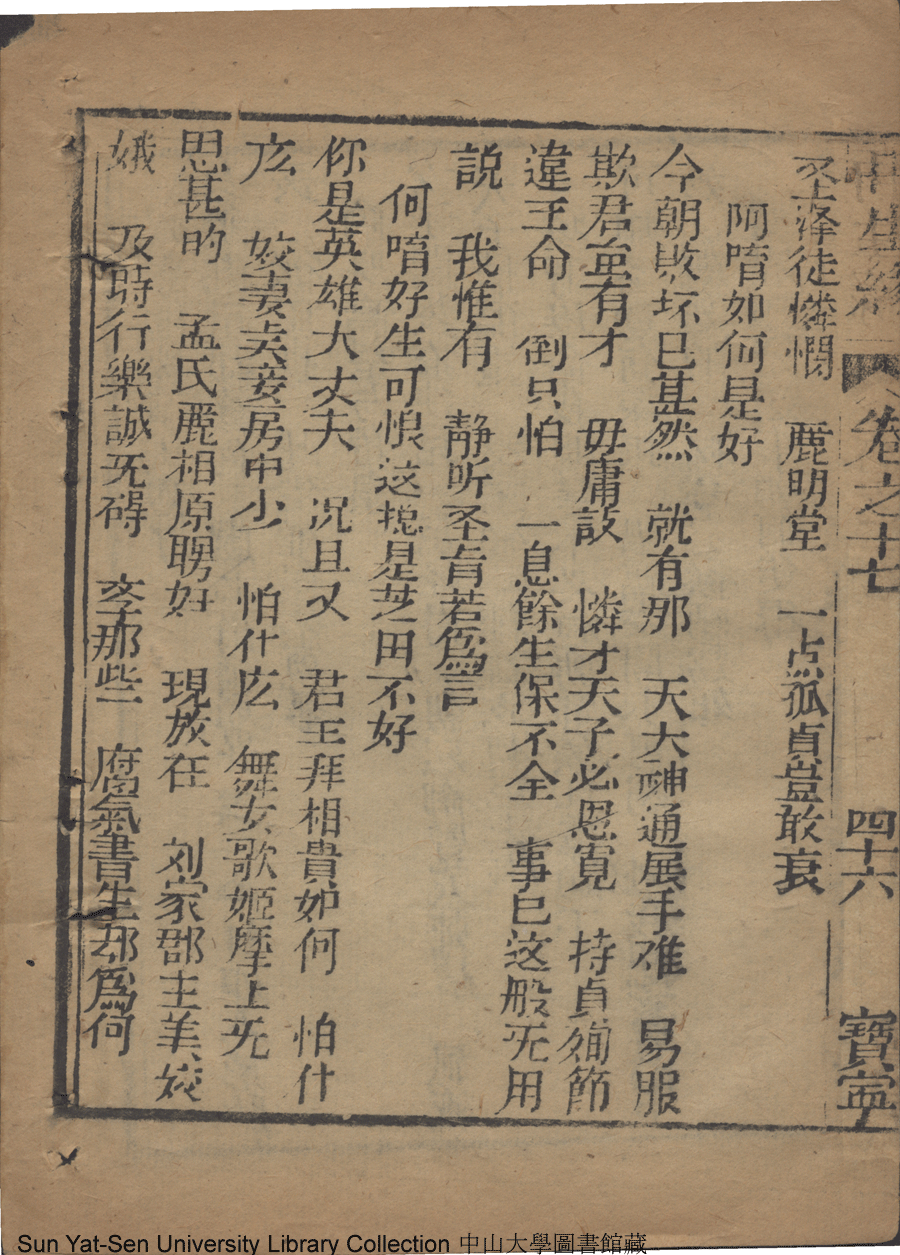 再生緣 卷之十七 四十六 寶寧
圣泽徒憐憫 麗明堂 一点孤貞豈敢衰
阿唷如何是好
今朝敗坏已甚然 就有那 天大神通展手难 易服
欺君虽有才 毋庸設 憐才天子必恩寬 持貞殉節
違王命 倒只怕 一息餘生保不全 事已这般旡用
說 我惟有 静听圣旨若爲言
何唷好生可恨这捴是芝田不好
你是英雄大丈夫 况且又 君王拜相貴如何 怕什
庅 姣妻美妾房中少 怕什庅 舞女歌姬摩上旡
思甚的 孟氏麗相原聘妇 現放在 刘家郡主美姣
娥 及時行樂誠旡碍 李那些 腐氣書生却爲何
Sun Yat-Sen University Library Collection 中山大學圖書館藏